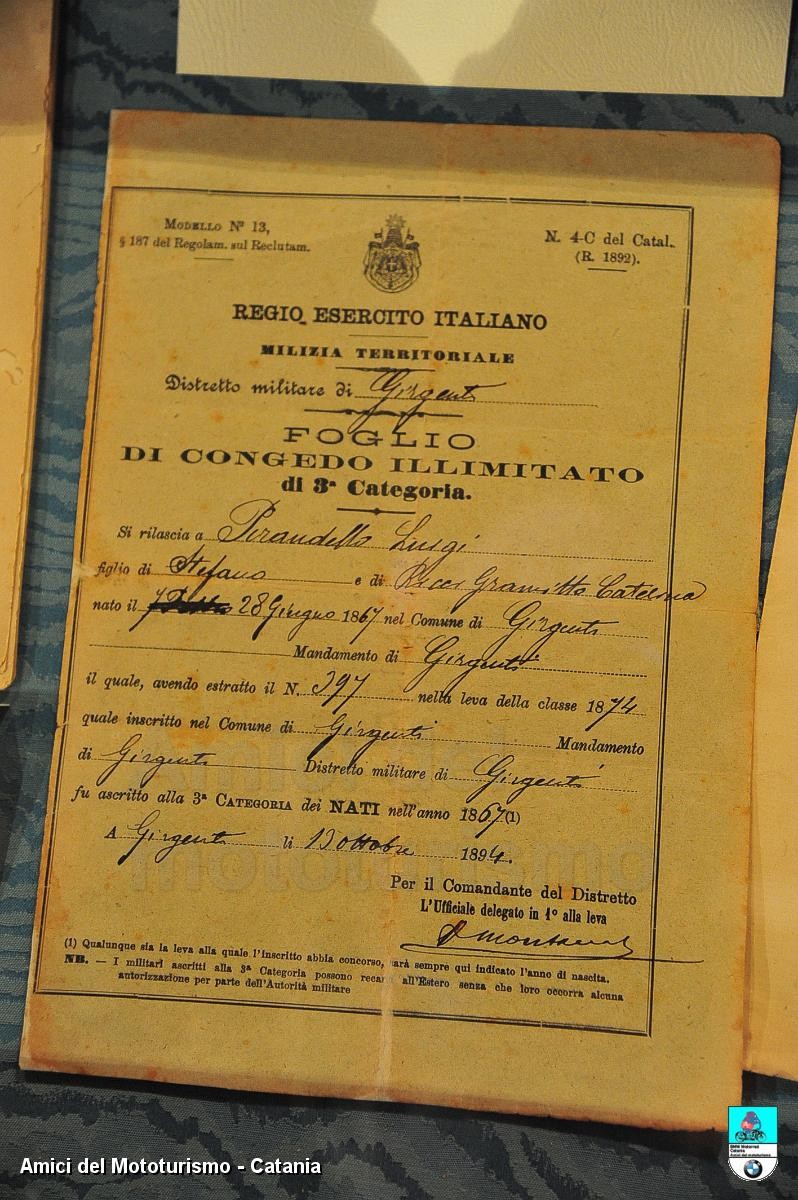 MODELLO Nº 13,
§ 187 del Regolam. sul Reclutam.
N. 4-C del Catal.
(R. 1892).
REGIO ESERCITO ITALIANO
MILIZIA TERRITORIALE
Distretto militare di Girgenti
FOGLIO
DI CONGEDO ILLIMITATO
di 3ª Categoria.
Si rilascia a Pirandello Luigi
figlio di Stefano e di Ricci Gramitto Caterina
nato il 28 Giugno 1867 nel Comune di Girgenti
Mandamento di Girgenti
il quale, avendo estratto il N. 397 nella leva della classe 1874
quale inscritto nel Comune di Girgenti Mandamento
di Girgenti Distretto militare di Girgenti
fu ascritto alla 3ª CATEGORIA dei NATI nell'anno 1867 (1)
A Girgenti li 13 ottobre 1894.
Per il Comandante del Distretto
L'Ufficiale delegato in 1º alla leva
(1) Qualunque sia la leva alla quale l'inscritto abbia concorso, sarà sempre qui indicato l'anno di nascita.
NB. — I militari ascritti alla 3ª Categoria possono recarsi all'Estero senza che loro occorra alcuna
autorizzazione per parte dell'Autorità militare
Amici del Mototurismo - Catania
BMW Motorrad
Catania
Amici del mototurismo